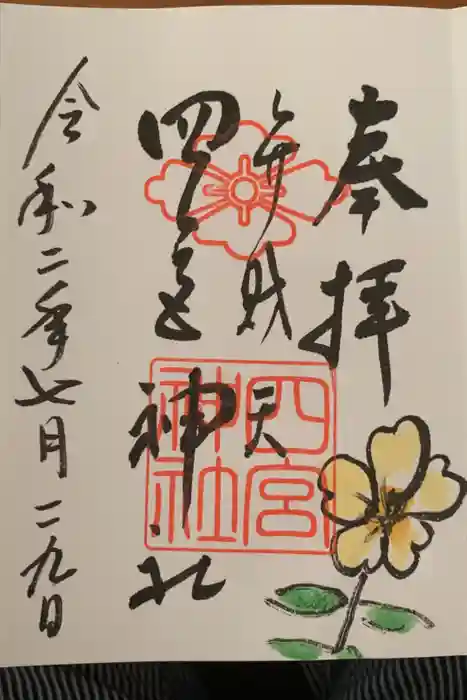 奉拝
弁財天
四宮神社
四宮
神社
令和二年七月二九日